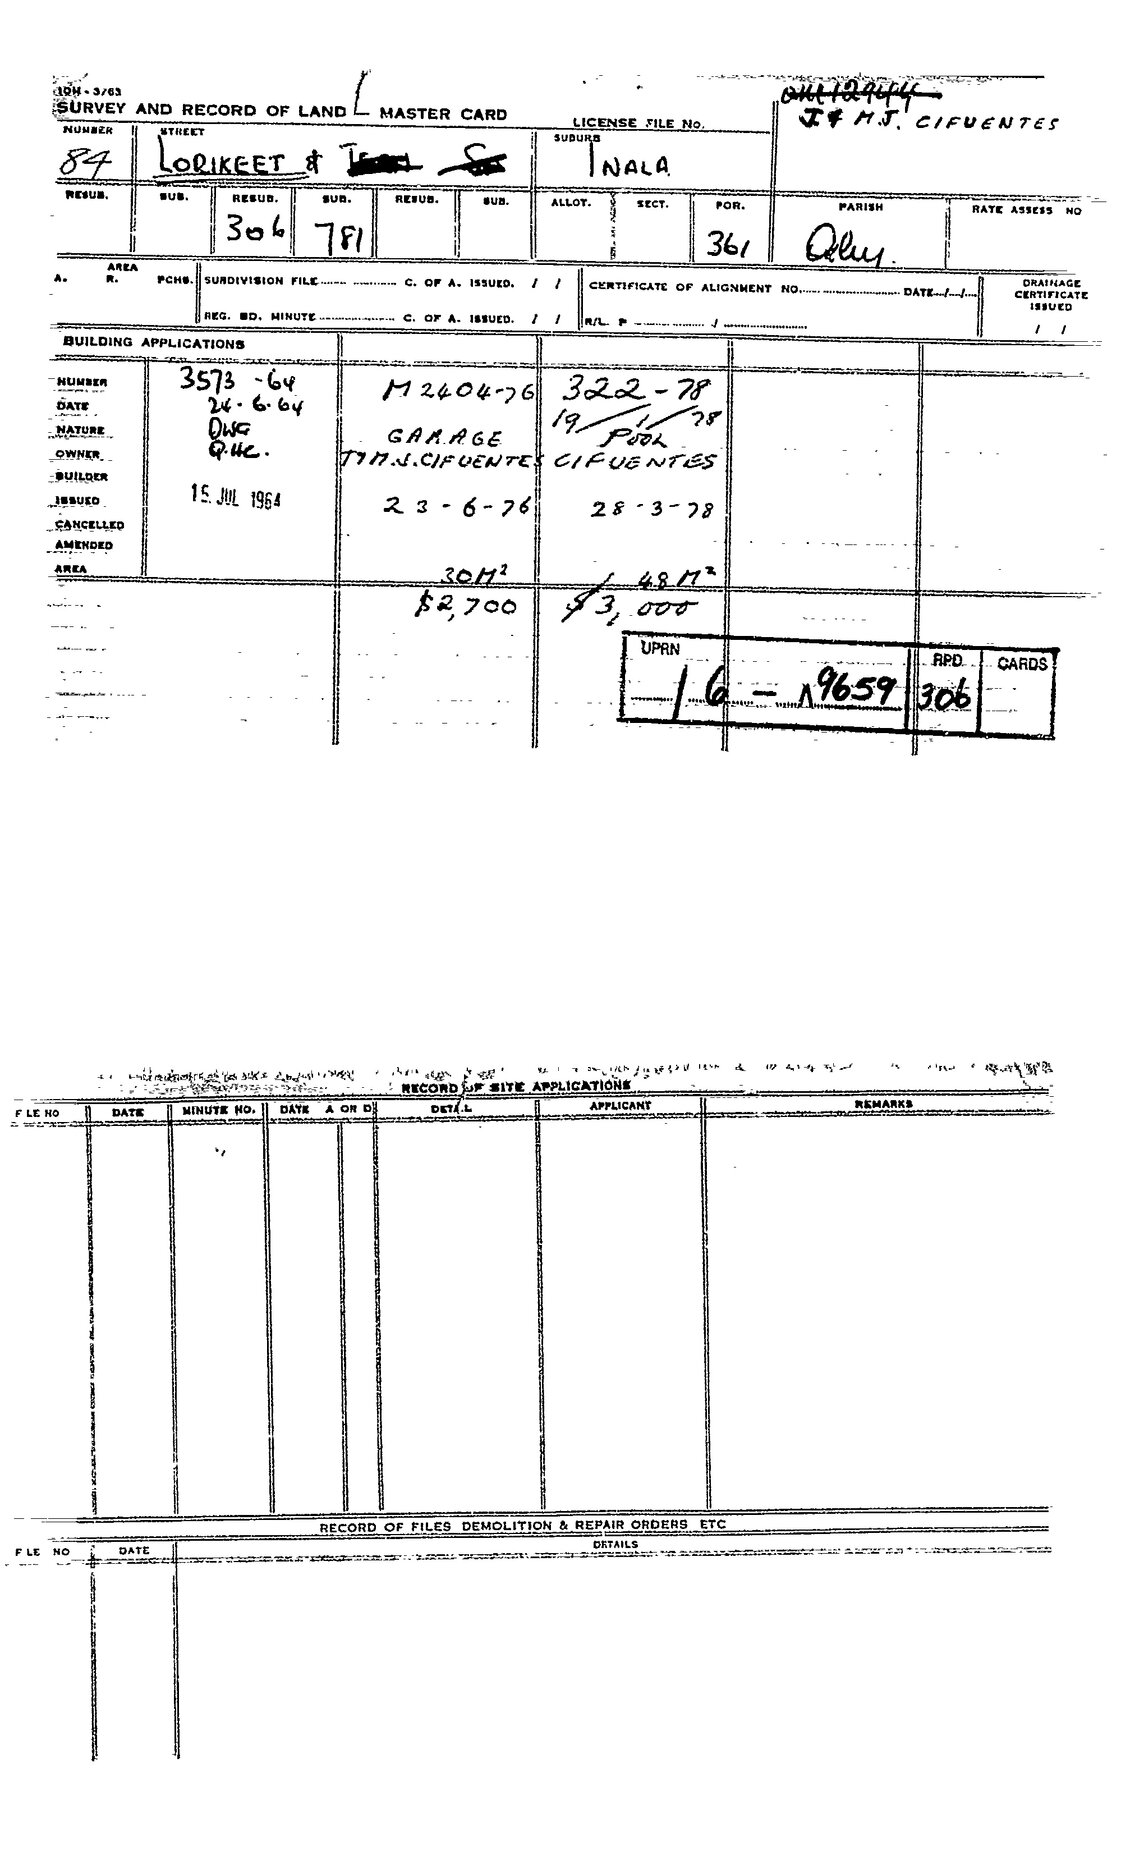 IOH - 3/63
SURVEY AND RECORD OF LAND MASTER CARD
LICENSE FILE No.
J & M.J. CIFUENTES
NUMBER STREET SUBURB
84 LORIKEET & INALA
RESUB. SUB. RESUB. SUB. RESUB. SUB. ALLOT. SECT. POR. PARISH RATE ASSESS NO
306 781 361 Oxley.
AREA
A. R. PCHS. SUBDIVISION FILE C. OF A. ISSUED. / / CERTIFICATE OF ALIGNMENT NO. DATE / / DRAINAGE CERTIFICATE ISSUED
REG. BD. MINUTE C. OF A. ISSUED. / / R/L. P / / /
BUILDING APPLICATIONS
NUMBER 3573 -64 M2404-76 322-78
DATE 24-6-64 19/1/78
NATURE DWG GARAGE POOL
OWNER Q.H.C. M.J.CIFUENTES CIFUENTES
BUILDER
ISSUED 15 JUL 1964 23-6-76 28-3-78
CANCELLED
AMENDED
AREA 30M² 48M²
$2,700 $3,000
UPRN RPD CARDS
16 - 9659 306
RECORD OF SITE APPLICATIONS
F LE NO DATE MINUTE NO. DATE A OR D DETAIL APPLICANT REMARKS
RECORD OF FILES DEMOLITION & REPAIR ORDERS ETC
F LE NO DATE DETAILS